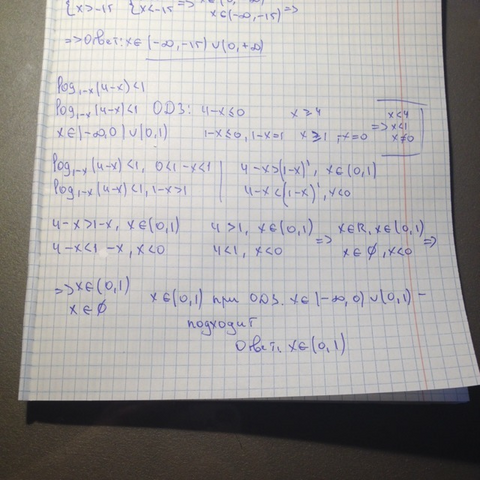 {x>-15 {x<-15 => x∈(-∞,-15) =>
=> Ответ: x∈(-∞,-15)∪(0,+∞)
log₁₋ₓ(4-x)<1
log₁₋ₓ(4-x)<1 ОДЗ: 4-x≤0 x≥4 x<4
x∈(-∞,0)∪(0,1) 1-x≤0, 1-x=1 x≥1, x=0 => x<1
x≠0
log₁₋ₓ(4-x)<1, 0<1-x<1 | 4-x>(1-x)¹, x∈(0,1)
log₁₋ₓ(4-x)<1, 1-x>1 | 4-x<(1-x)¹, x<0
4-x>1-x, x∈(0,1) 4>1, x∈(0,1) => x∈R, x∈(0,1)
4-x<1-x, x<0 4<1, x<0 x∈∅, x<0 =>
=> x∈(0,1) x∈(0,1) при ОДЗ. x∈(-∞,0)∪(0,1) -
x∈∅ подходит
Ответ: x∈(0,1)